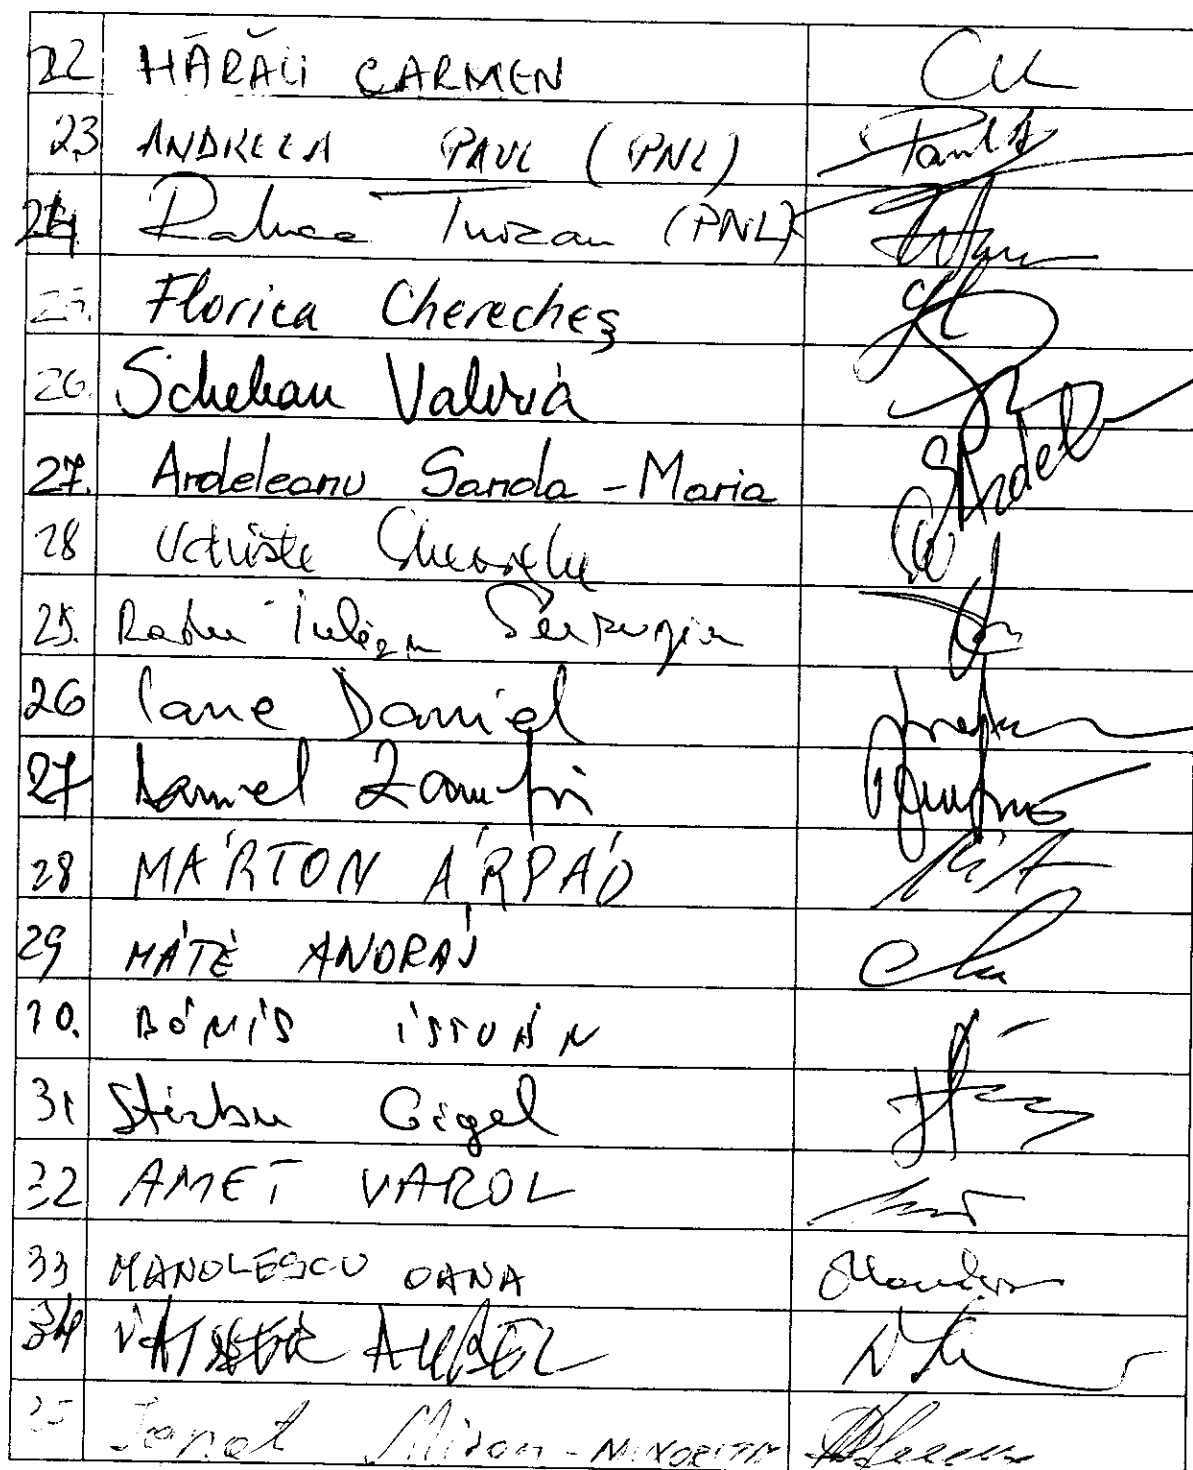 22 HĂRĂU CARMEN
23 ANDREEA PAUL (PNL)
24 Raluca Turcan (PNL)
25. Florica Cherecheș
26. Schelean Valeria
27. Ardeleanu Sanda-Maria
28 Gheorghe
25. Radu Iulian
26 Oane Daniel
27 Daniel Zamfir
28 MÁRTON ÁRPÁD
29 MÁTÉ ANDRÁS
30. ISTVÁN
31 Știrbu Gigel
32 AMET VAROL
33 MANOLESCU OANA
34 AUREL
35 Ianot Miron - MINORITĂȚI